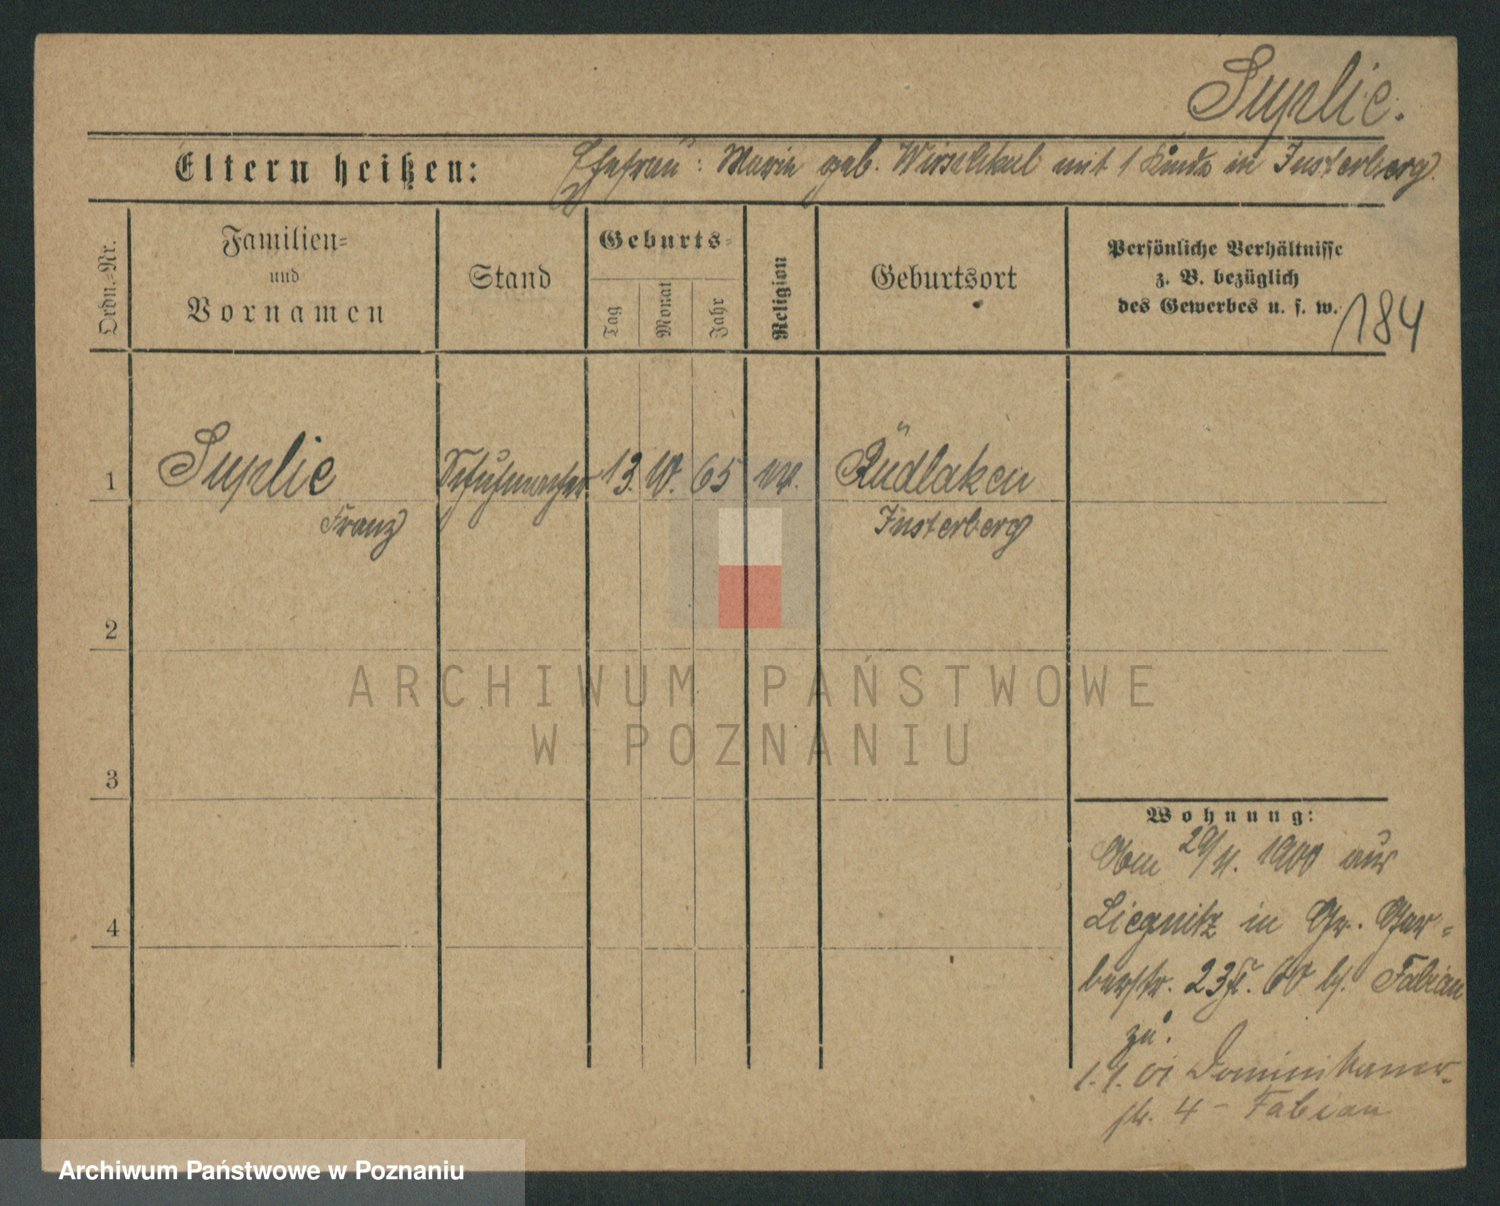 Suplie.
Eltern heißen: Ehefrau: Marie geb. Wirschkul mit 1 Kinde in Insterberg.
Ordn.-Nr.
Familien-
und
Vornamen
Stand
Geburts-
Tag
Monat
Jahr
Religion
Geburtsort
Persönliche Verhältnisse
z. B. bezüglich
des Gewerbes u. s. w.
184
1 Suplie Schuhmacher 13. 10. 65 ev. Rüdlaken
Franz Insterberg
2
ARCHIWUM PAŃSTWOWE
W POZNANIU
3
Wohnung:
Am 29/11. 1900 aus
4 Liegnitz in Gr. Ger-
berstr. 23 II. bei Fabian
zu.
1. 1. 01 Dominikaner-
str. 4 - Fabian
Archiwum Państwowe w Poznaniu